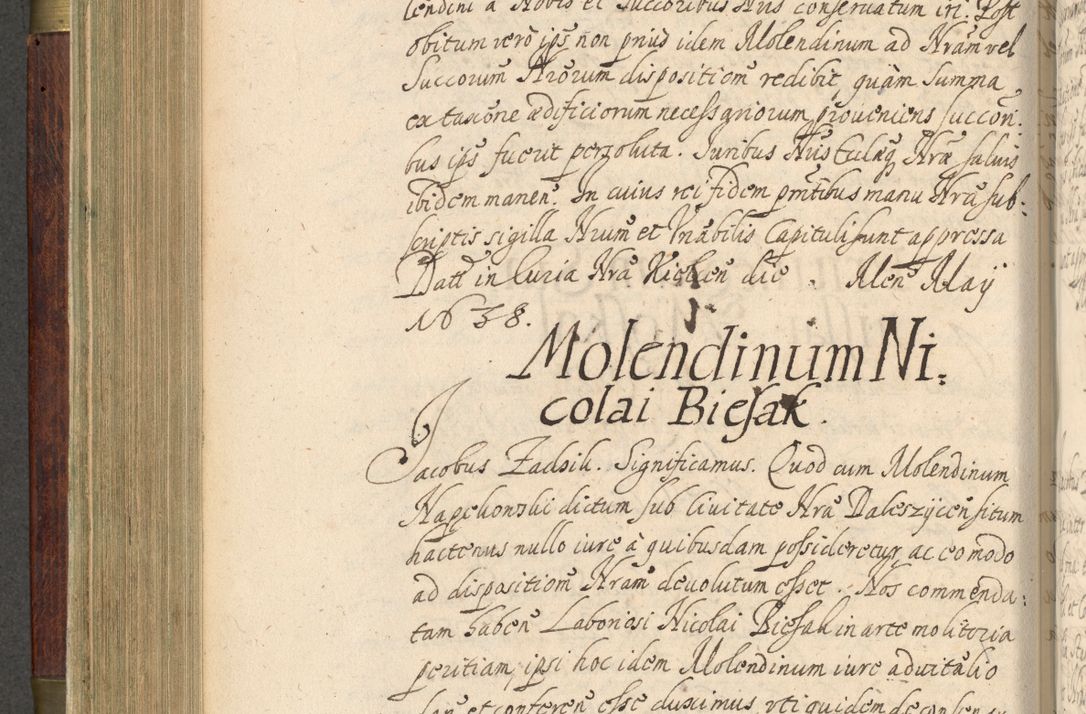 lendini a Nobis et Succoribus Nris conseruatum iri. Post
obitum verò ips̃ non prius idem Molendinum ad Nrãm vel
Succorum Nrõrum dispositiom̃ redibit, quàm summa
ex taxõne ædificiorum necessariorum proueniens succori:
bus ips̃ fuerit persoluta. Iuribus Nris Eccl̃æq̃ Nræ saluis
ibidem manen̄. In cuius rei fidem pn̄tibus manu Nrã sub:
scriptis sigilla Nrum̃ et Vn̄abilis Capituli sunt appressa
Datt̃ in Curia Nrã Kielcen̄ die . Men̄ May
1638.
Molendinum Ni:
colai Biesak.
Jacobus Zadzik. Significamus. Quod cum Molendinum
Napękowski dictum sub Ciuitate Nrã Daleszycen̄ situm
hactenus nullo iure à quibusdam possideretur, ac eo modo
ad dispositiom̃ Nram̃ deuolutum esset. Nos commenda:
tam haben̄ Laboriosi Nicolai Biesak in arte molitoria
peritiam, ipsi hoc idem Molendinum iure aduitalio
dan̄ et conferen̄ esse duximus vti quidem de consensu